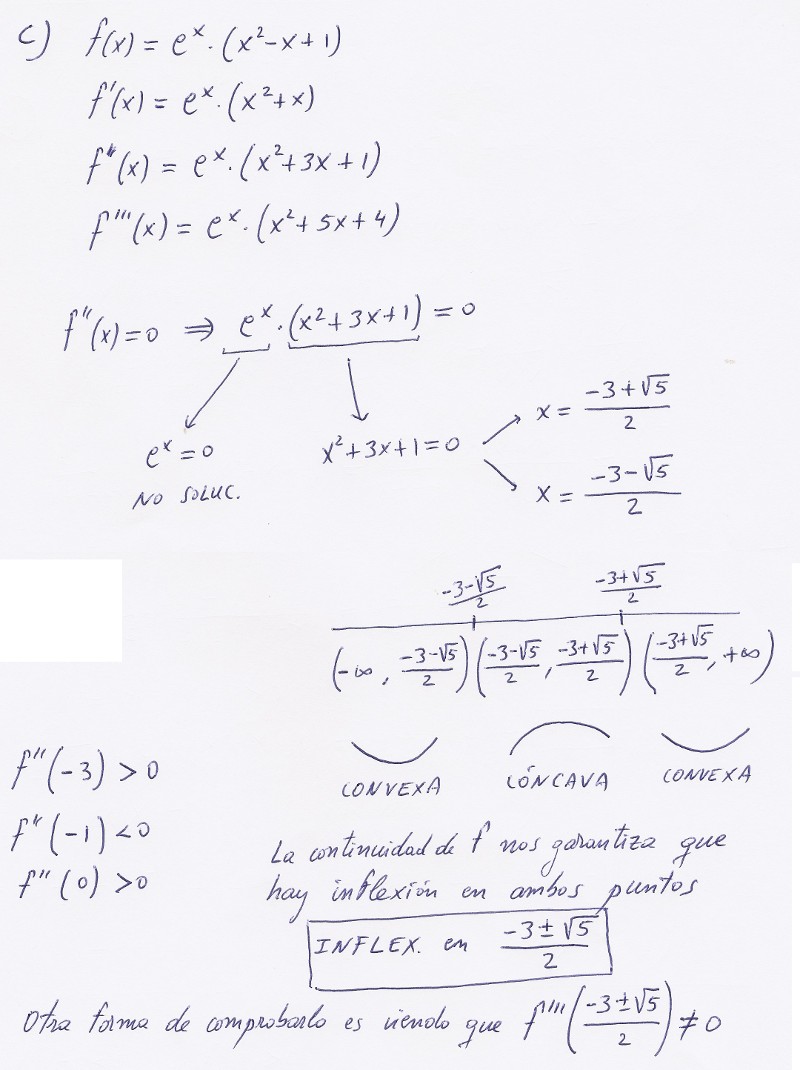 c) f(x) = eˣ · (x²-x+1)
f'(x) = eˣ · (x²+x)
f"(x) = eˣ · (x²+3x+1)
f'''(x) = eˣ · (x²+5x+4)
f"(x)=0 ⇒ eˣ · (x²+3x+1) = 0
eˣ = 0
NO SOLUC.
x²+3x+1=0
x = (-3+√5)/2
x = (-3-√5)/2
(-3-√5)/2 (-3+√5)/2
(-∞, (-3-√5)/2) ((-3-√5)/2, (-3+√5)/2) ((-3+√5)/2, +∞)
CONVEXA CÓNCAVA CONVEXA
f"(-3) > 0
f"(-1) < 0
f"(0) > 0
La continuidad de f nos garantiza que
hay inflexión en ambos puntos
INFLEX. en (-3±√5)/2
Otra forma de comprobarlo es viendo que f'''((-3±√5)/2) ≠ 0